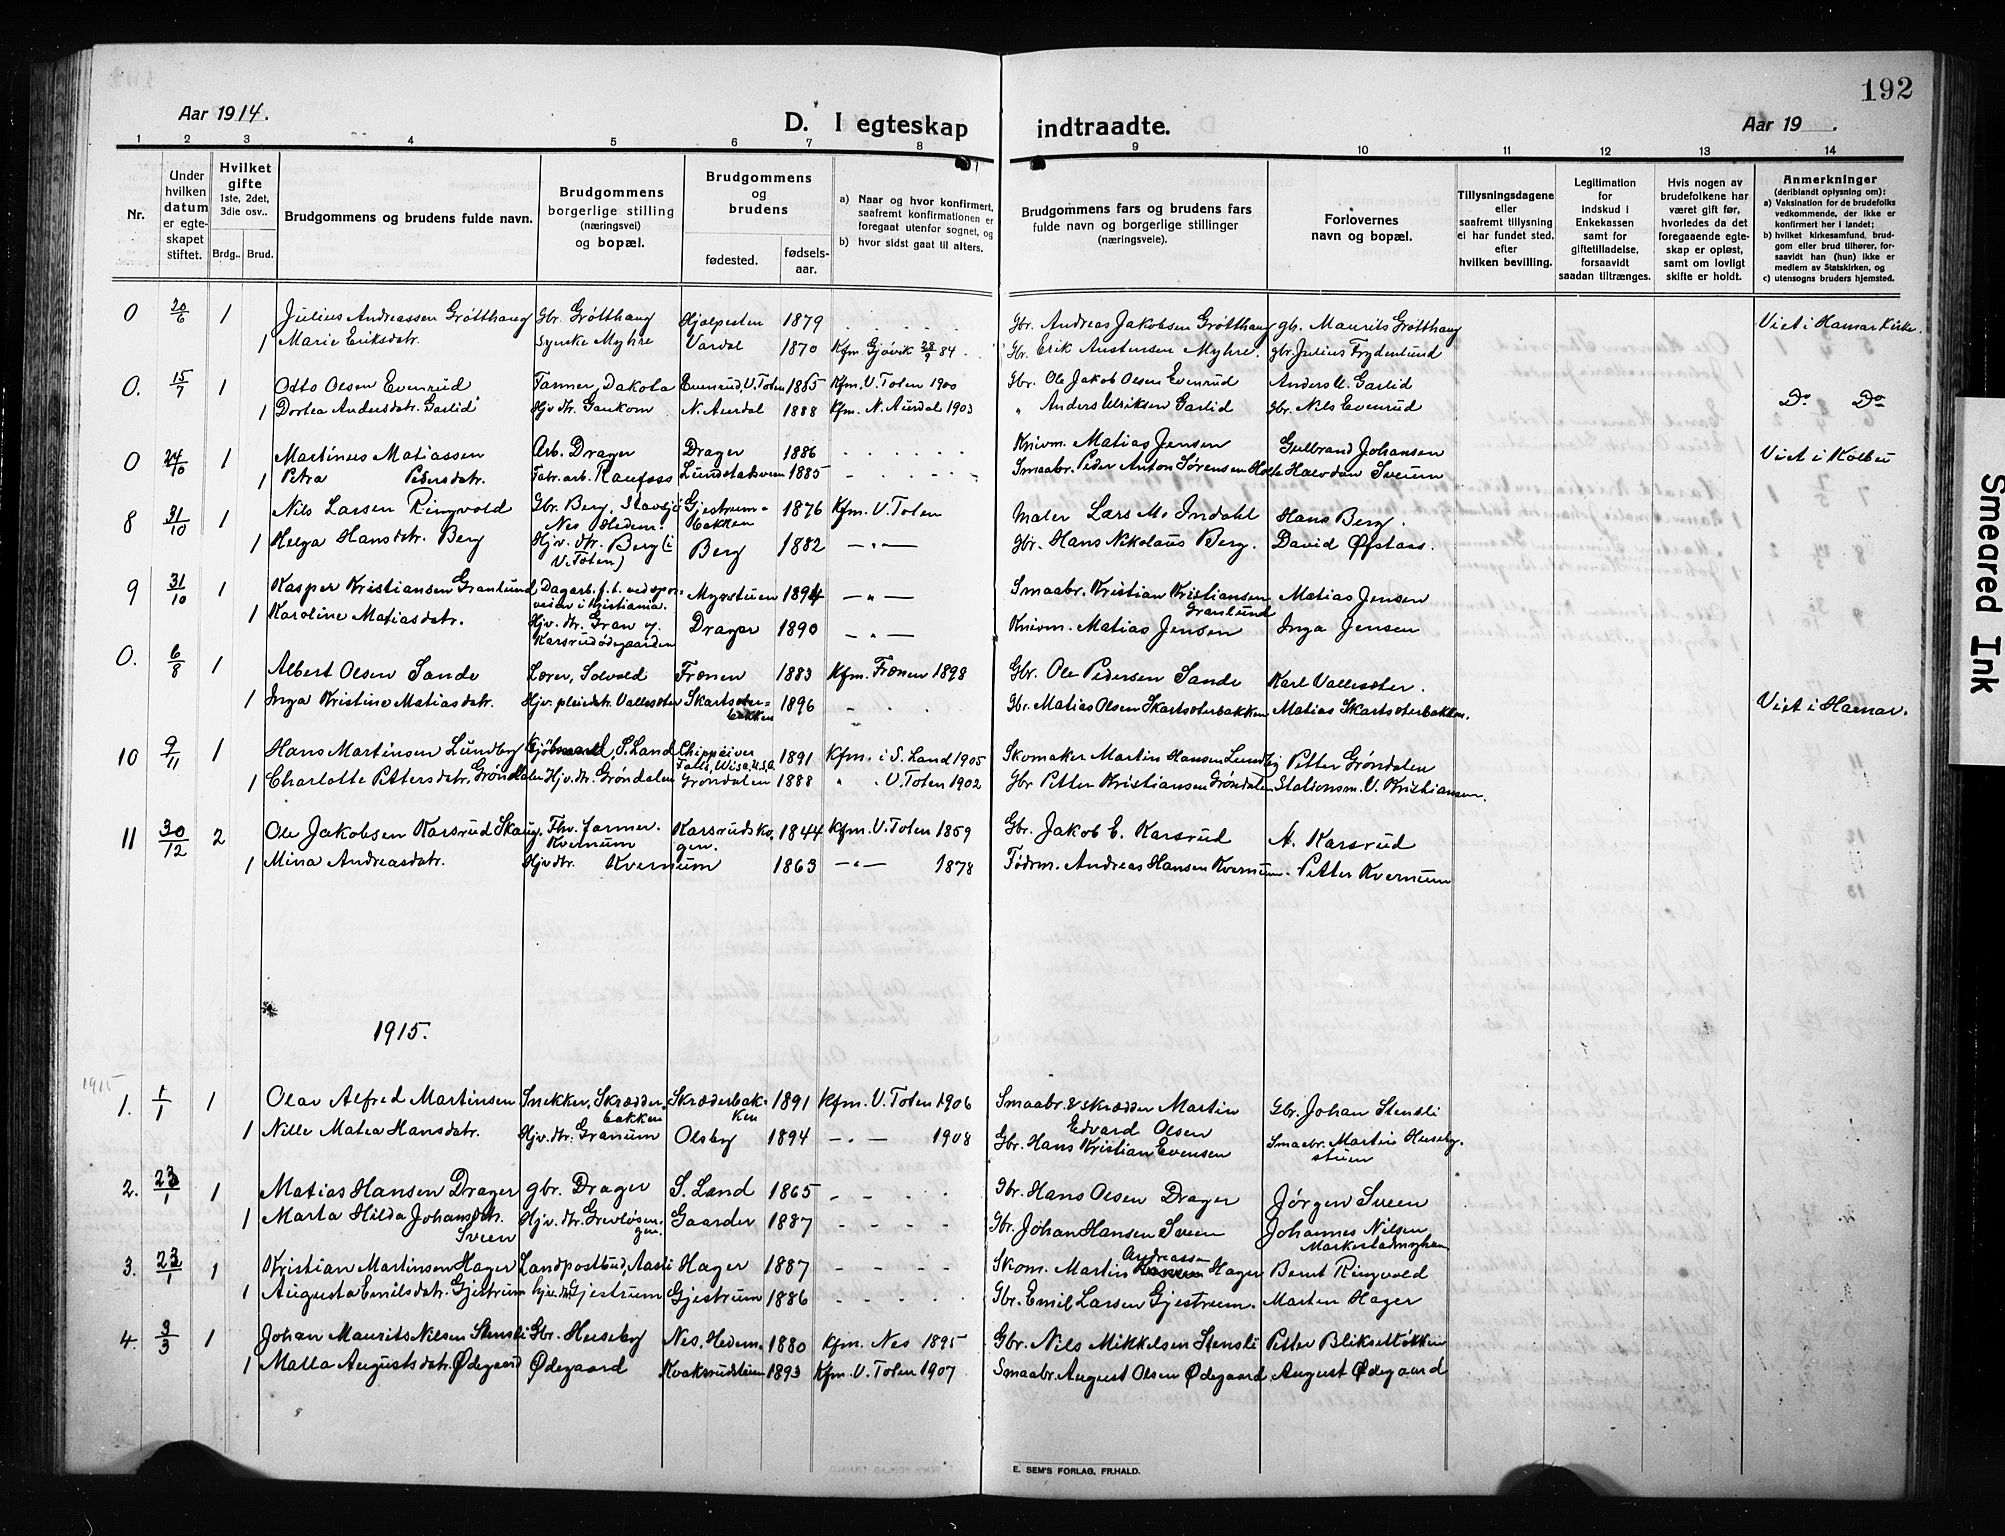 192
Aar 1914.
D. I egteskap indtraadte.
Aar 19   .
1 2 3 4 5 6 7 8 9 10 11 12 13 14
Nr.
Under hvilken datum er egteskapet stiftet.
Hvilket gifte 1ste, 2det, 3die osv..
Brdg.. Brud.
Brudgommens og brudens fulde navn.
Brudgommens borgerlige stilling (næringsvei) og bopæl.
Brudgommens og brudens
fødested.
fødsels-aar.
a) Naar og hvor konfirmert, saafremt konfirmationen er foregaat utenfor sognet, og
b) hvor sidst gaat til alters.
Brudgommens fars og brudens fars fulde navn og borgerlige stillinger (næringsveie).
Forlovernes navn og bopæl.
Tillysningsdagene eller saafremt tillysning ei har fundet sted, efter hvilken bevilling.
Legitimation for indskud i Enkekassen samt for giftetilladelse, forsaavidt saadan tiltrænges.
Hvis nogen av brudefolkene har været gift før, hvorledes da det foregaaende egteskap er opløst, samt om lovligt skifte er holdt.
Anmerkninger (deriblandt oplysning om):
a) Vaksination for de brudefolks vedkommende, der ikke er konfirmert her i landet;
b) hvilket kirkesamfund, brudgom eller brud tilhører, forsaavidt han (hun) ikke er medlem av Statskirken, og
c) utensogns bruders hjemsted.
0 20/6 1 Julius Andreassen Grøtthaug Gbr. Grøtthaug Hjælpesten 1879 Gbr. Andreas Jakobsen Grøtthaug gb. Maurits Grøtthaug Viet i Hamar Kirke.
1 Marie Eriksdatr. Syerske Myhre Vardal 1870 Kfm. Gjøvik 28/9 84. Gbr. Erik Austensen Myhre. gbr Julius Frydenlund
0. 15/7 1 Otto Olsen Evenrud Farmer, Dakota Evenrud, V. Toten 1885 Kfm. V. Toten 1900 Gbr. Ole Jakob Olsen Evenrud Anders U. Garlid
1 Dortea Andersdatr. Garlid Hjv. dtr. Gaukom N. Aurdal 1888 Kfm. N. Aurdal 1903 " Anders Ulriksen Garlid gbr. Nils Evenrud Do Do
0 24/10 1 Martinus Matiassen Arb. Drager Drager 1886 Knivm. Matias Jensen Gulbrand Johansen Viet i Kolbu
1 Petra Pedersdatr. Fabr. arb. Raufoss 1885 Smaabr. Peder Anton Sørensen Holte Halvdan Sveum
8 31/10 1 Nils Larsen Ringvold Gbr. Berg, Stavsjø Nes Hedem. Gjestrumbakken 1876 Kfm. V. Toten Maler Lars M. Indahl Hans Berg.
1 Helga Hansdatr. Berg Hjv. dtr. Berg (i V. Toten) Berg 1882 — " — Gbr. Hans Nikolaus Berg. David Øfstaas.
9 31/10 1 Kasper Kristiansen Granlund Dagarb. f. t. ved sporveien i Kristiania. Myrstuen 1894 — " — Smaabr. Kristian Kristiansen Granlund Matias Jensen
1 Karoline Matiasdatr. Hjv. dtr. Gran og Karsrudødegaarden Drager 1890 — " — Knivm. Matias Jensen Inga Jensen
0. 6/8 1 Albert Olsen Sande Lærer, Solvold Frænen 1883 Kfm. Frænen 1898 Gbr. Ole Pedersen Sande Karl Vallesæter.
1 Inga Kristine Matiasdatr. Hjv. pleiedtr. Vallesæter Skartsæterbakken 1896 Gbr. Matias Olsen Skartsæterbakken Matias Skartsæterbakken. Viet i Hamar.
10 9/11 1 Hans Martinsen Lundby S. Land Chippeiver Falls, Wis. U.S.A. 1891 Kfm. i S. Land 1905 Skomaker Martin Hansen Lundby Petter Grøndalen
1 Charlotte Pettersdatr. Grøndalen Hjv. dtr. Grøndalen Grøndalen 1888 " " V. Toten 1902 Gbr Petter Kristiansen Grøndalen Stationsm. V. Kristiansen.
11 30/12 2 Ole Jakobsen Karsrud Skaug. Fhv. farmer. Kvernum Karsrudskogen. 1844 Kfm. V. Toten 1859 Gbr. Jakob E. Karsrud A. Karsrud
1 Mina Andreasdatr. Hjv dtr. Kvernum 1863 — " — 1878 Fødrm. Andreas Hansen Kvernum. Petter Kvernum
1915.
1915
1. 1/1 1 Olav Alfred Martinsen Snekker, Skrædderbakken Skræderbakken 1891 Kfm. V. Toten 1906 Smaabr. & skrædder Martin Edvard Olsen Gbr. Johan Stensli
1 Nille Matea Hansdatr. Hjv. dtr. Granum Olsby 1894 — " — 1908 Gbr. Hans Kristian Evensen Smaabr. Martin Husebystuen
2. 23/1 1 Matias Hansen Drager gbr. Drager S. Land 1865 Gbr. Hans Olsen Drager Jørgen Sveen
1 Marta Hilda Johansdtr. Sveen Hjv. dtr. Grevløsengen. Gaarder 1887 Gbr. Johan Hansen Sveen Johannes Nilsen
3. 23/1 1 Kristian Martinsen Hager Landpostbud, Aasli Hager 1887 Skom. Martin Andreassen Hager Bernt Ringvold
1 Augusta Emilsdatr. Gjestrum hjv. dtr. Gjestrum Gjestrum 1886 Gbr. Emil Larsen Gjestrum. Marten Hager
4. 3/3 1 Johan Maurits Nilsen Stensli Gbr. Huseby Nes, Hedem. 1880 Kfm. Nes 1895 Gbr. Nils Mikkelsen Stensli Petter Blikseth
1 Malla Augustsdatr. Ødegaard Ødegaard Kvaksrudstuen 1893 Kfm. V. Toten 1907 Smaabr. August Olsen Ødegaard August Ødegaard
E. SEM'S FORLAG, FR.HALD.
Smeared Ink